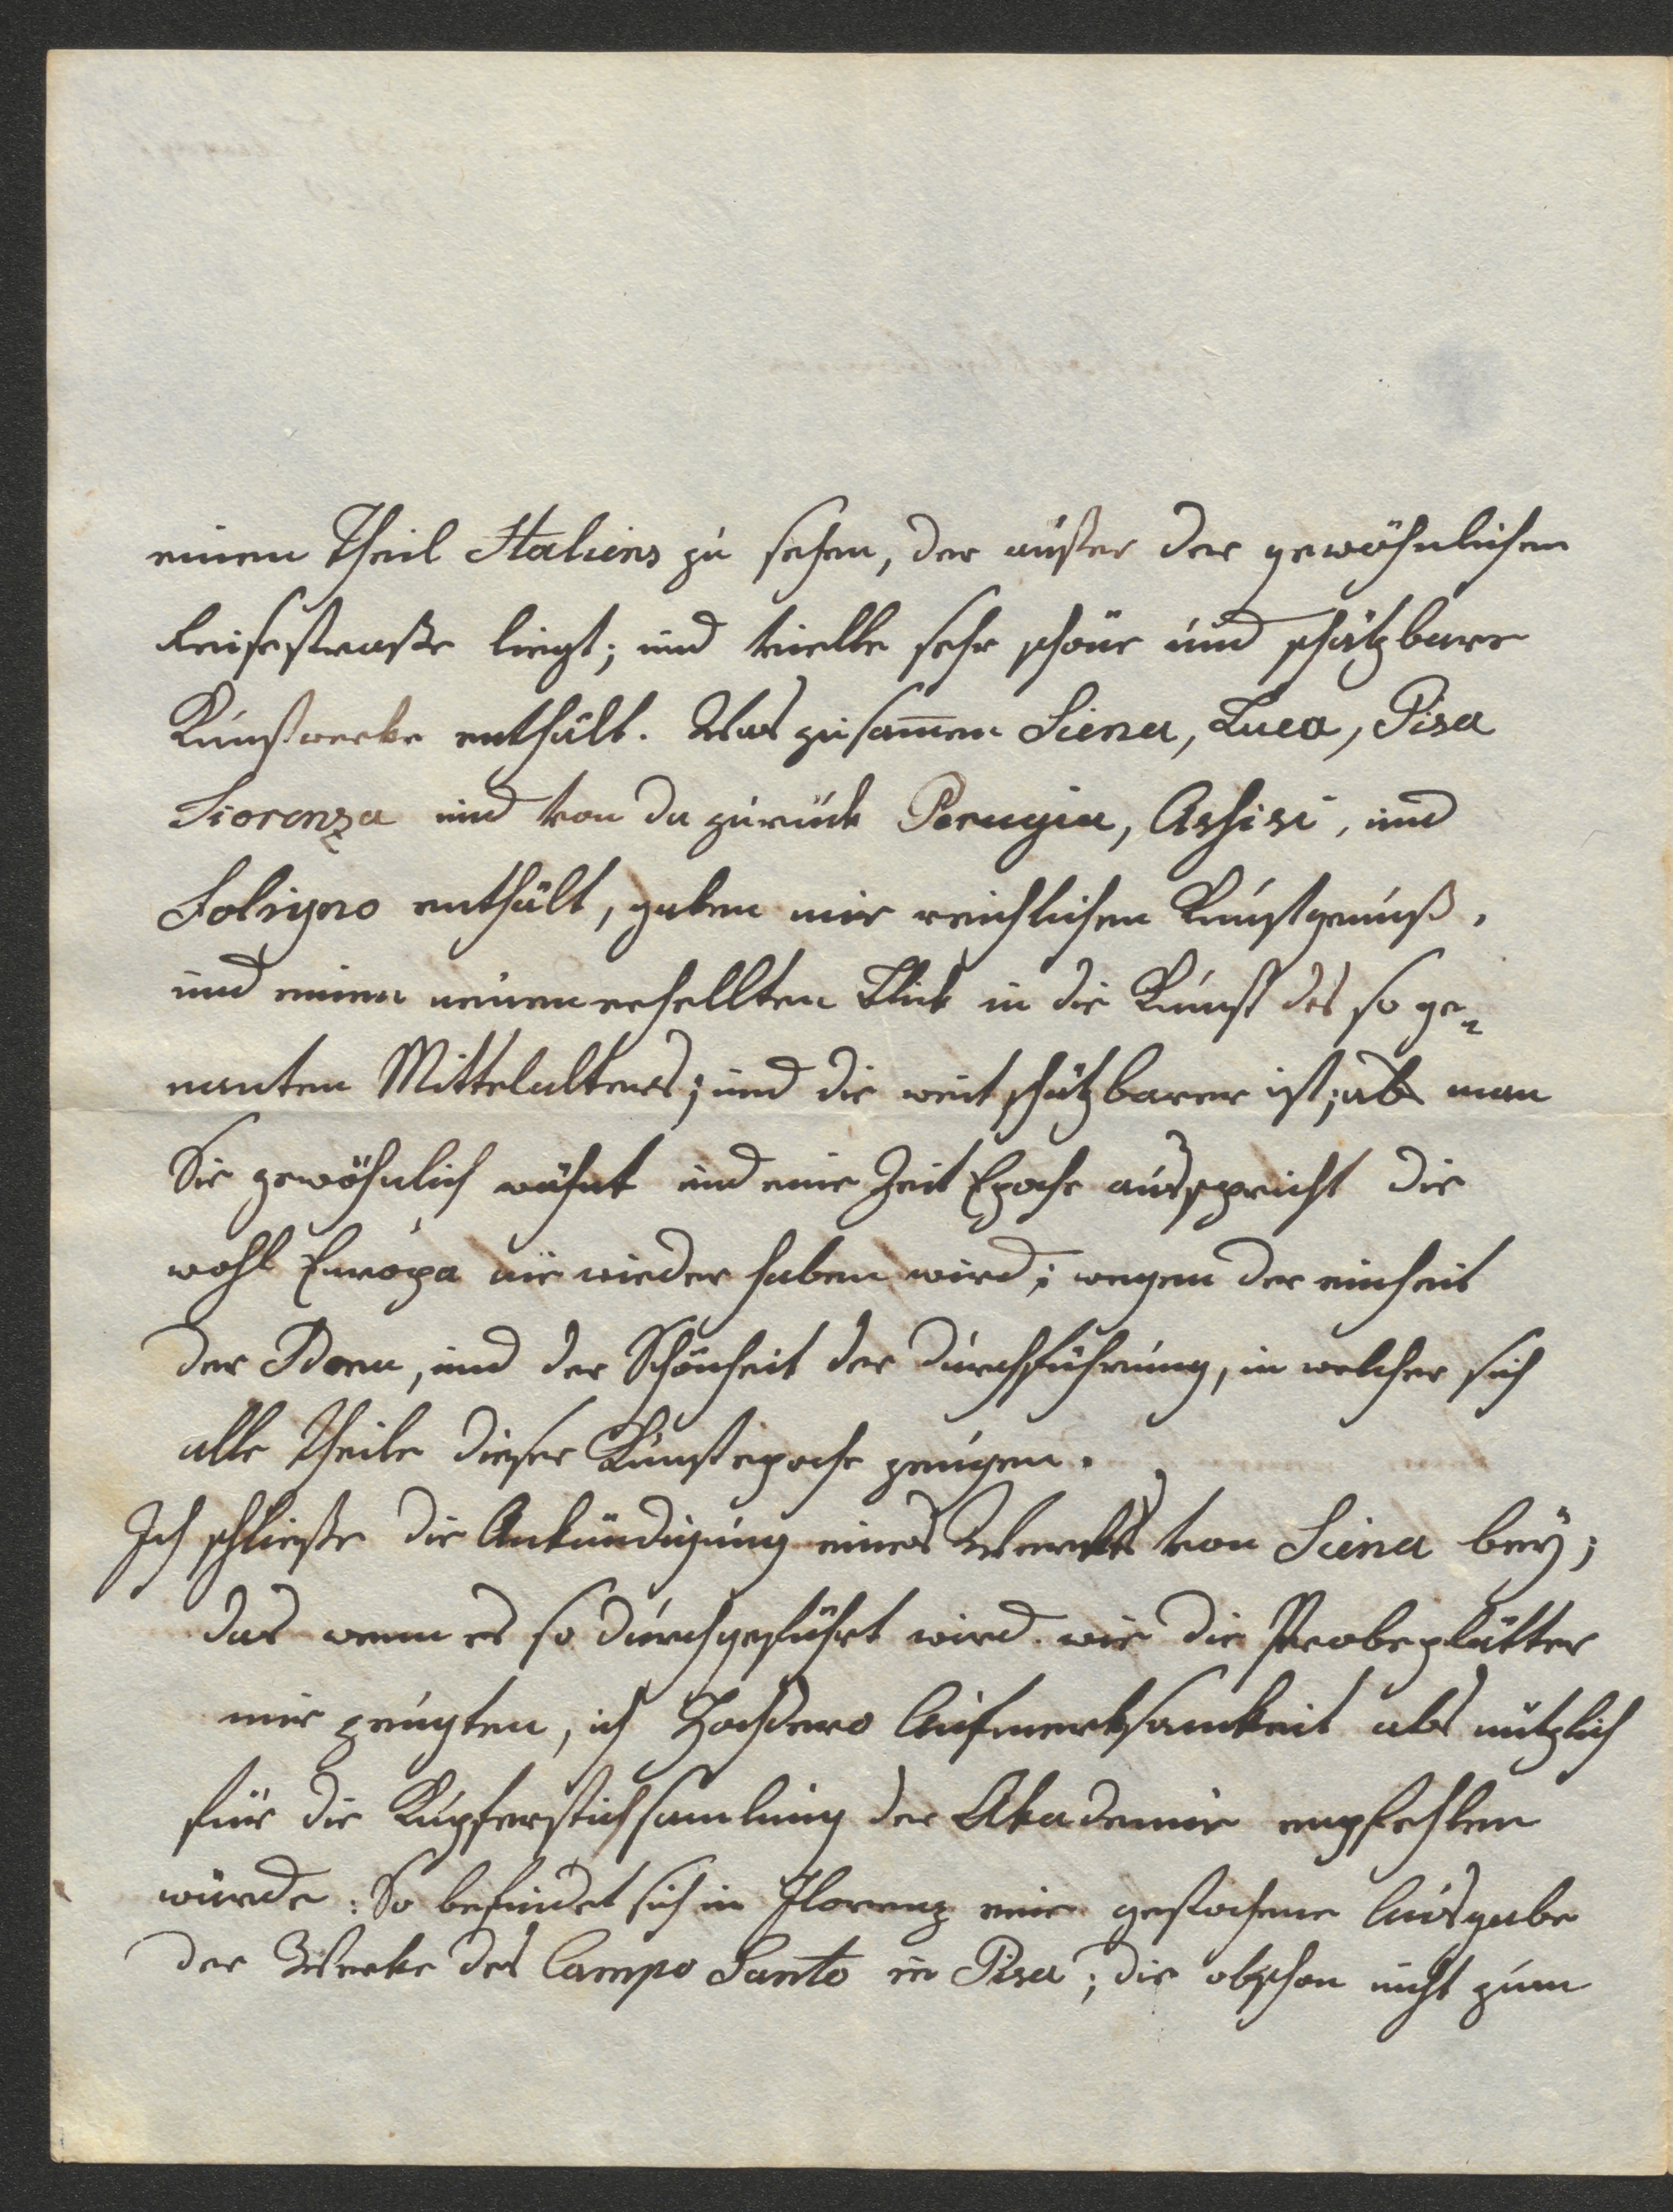 einen Theil Italiens zu sehen, der außer der gewöhnlichen
Reisestraße liegt; und vielle sehr schöne und schätzbare
Kunstwerke enthält. Was zusam̅en Siena, Luca, Pisa
Fiorenza und von da zurück Perugia, Assisi, und
Foligno enthält, gaben mir reichlichen Kunstgenuß,
und einen neuen erhellten Blick in die Kunst des so ge¬
nanten Mittelalters; und die weit schätzbarer ist; als man
Sie gewöhnlich wähnt und eine Zeit Epoche ausspricht die
wohl Europa nie wieder haben wird; wegen der einheit
der Idea, und der Schönheit der Durchführung, in welcher sich
alle Theile dieser Kunstepoche zeugen.
Ich schließe die Ankündigung eines Werkes von Siena beÿ;
das wenn es so durchgeführt wird wie die Probeplätter
mir zeugten, ich Hochdero Aufmerksamkeit als nützlich
für die Kupferstichsamlung der Akademie empfehlen
würde: So befindet sich in Florenz eine gestochene Ausgabe
der Werke des Campo Santo in Pisa; die obschon nicht zum